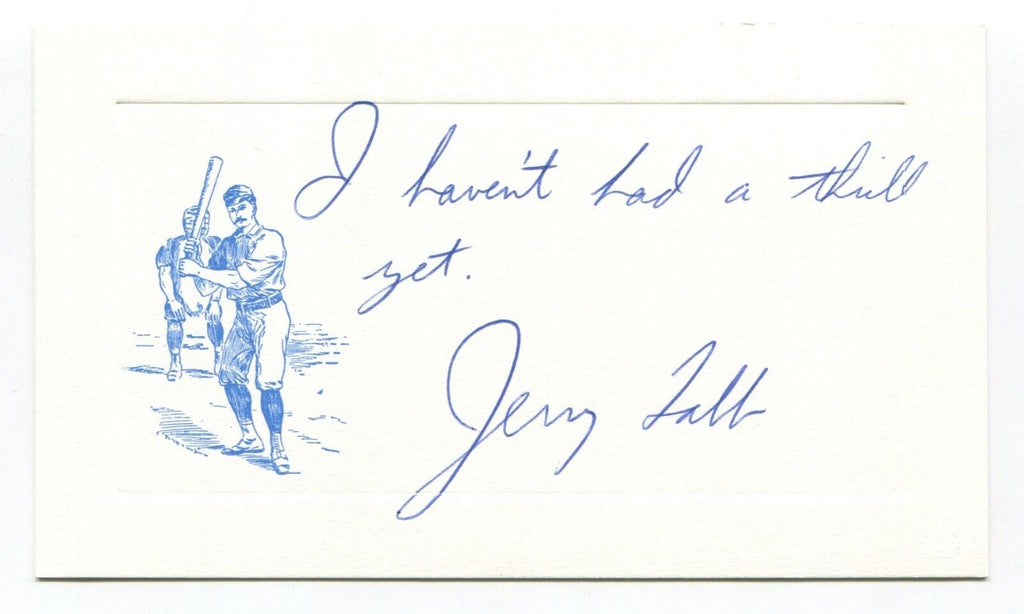 I haven't had a thrill
yet.
Jerry Tabb